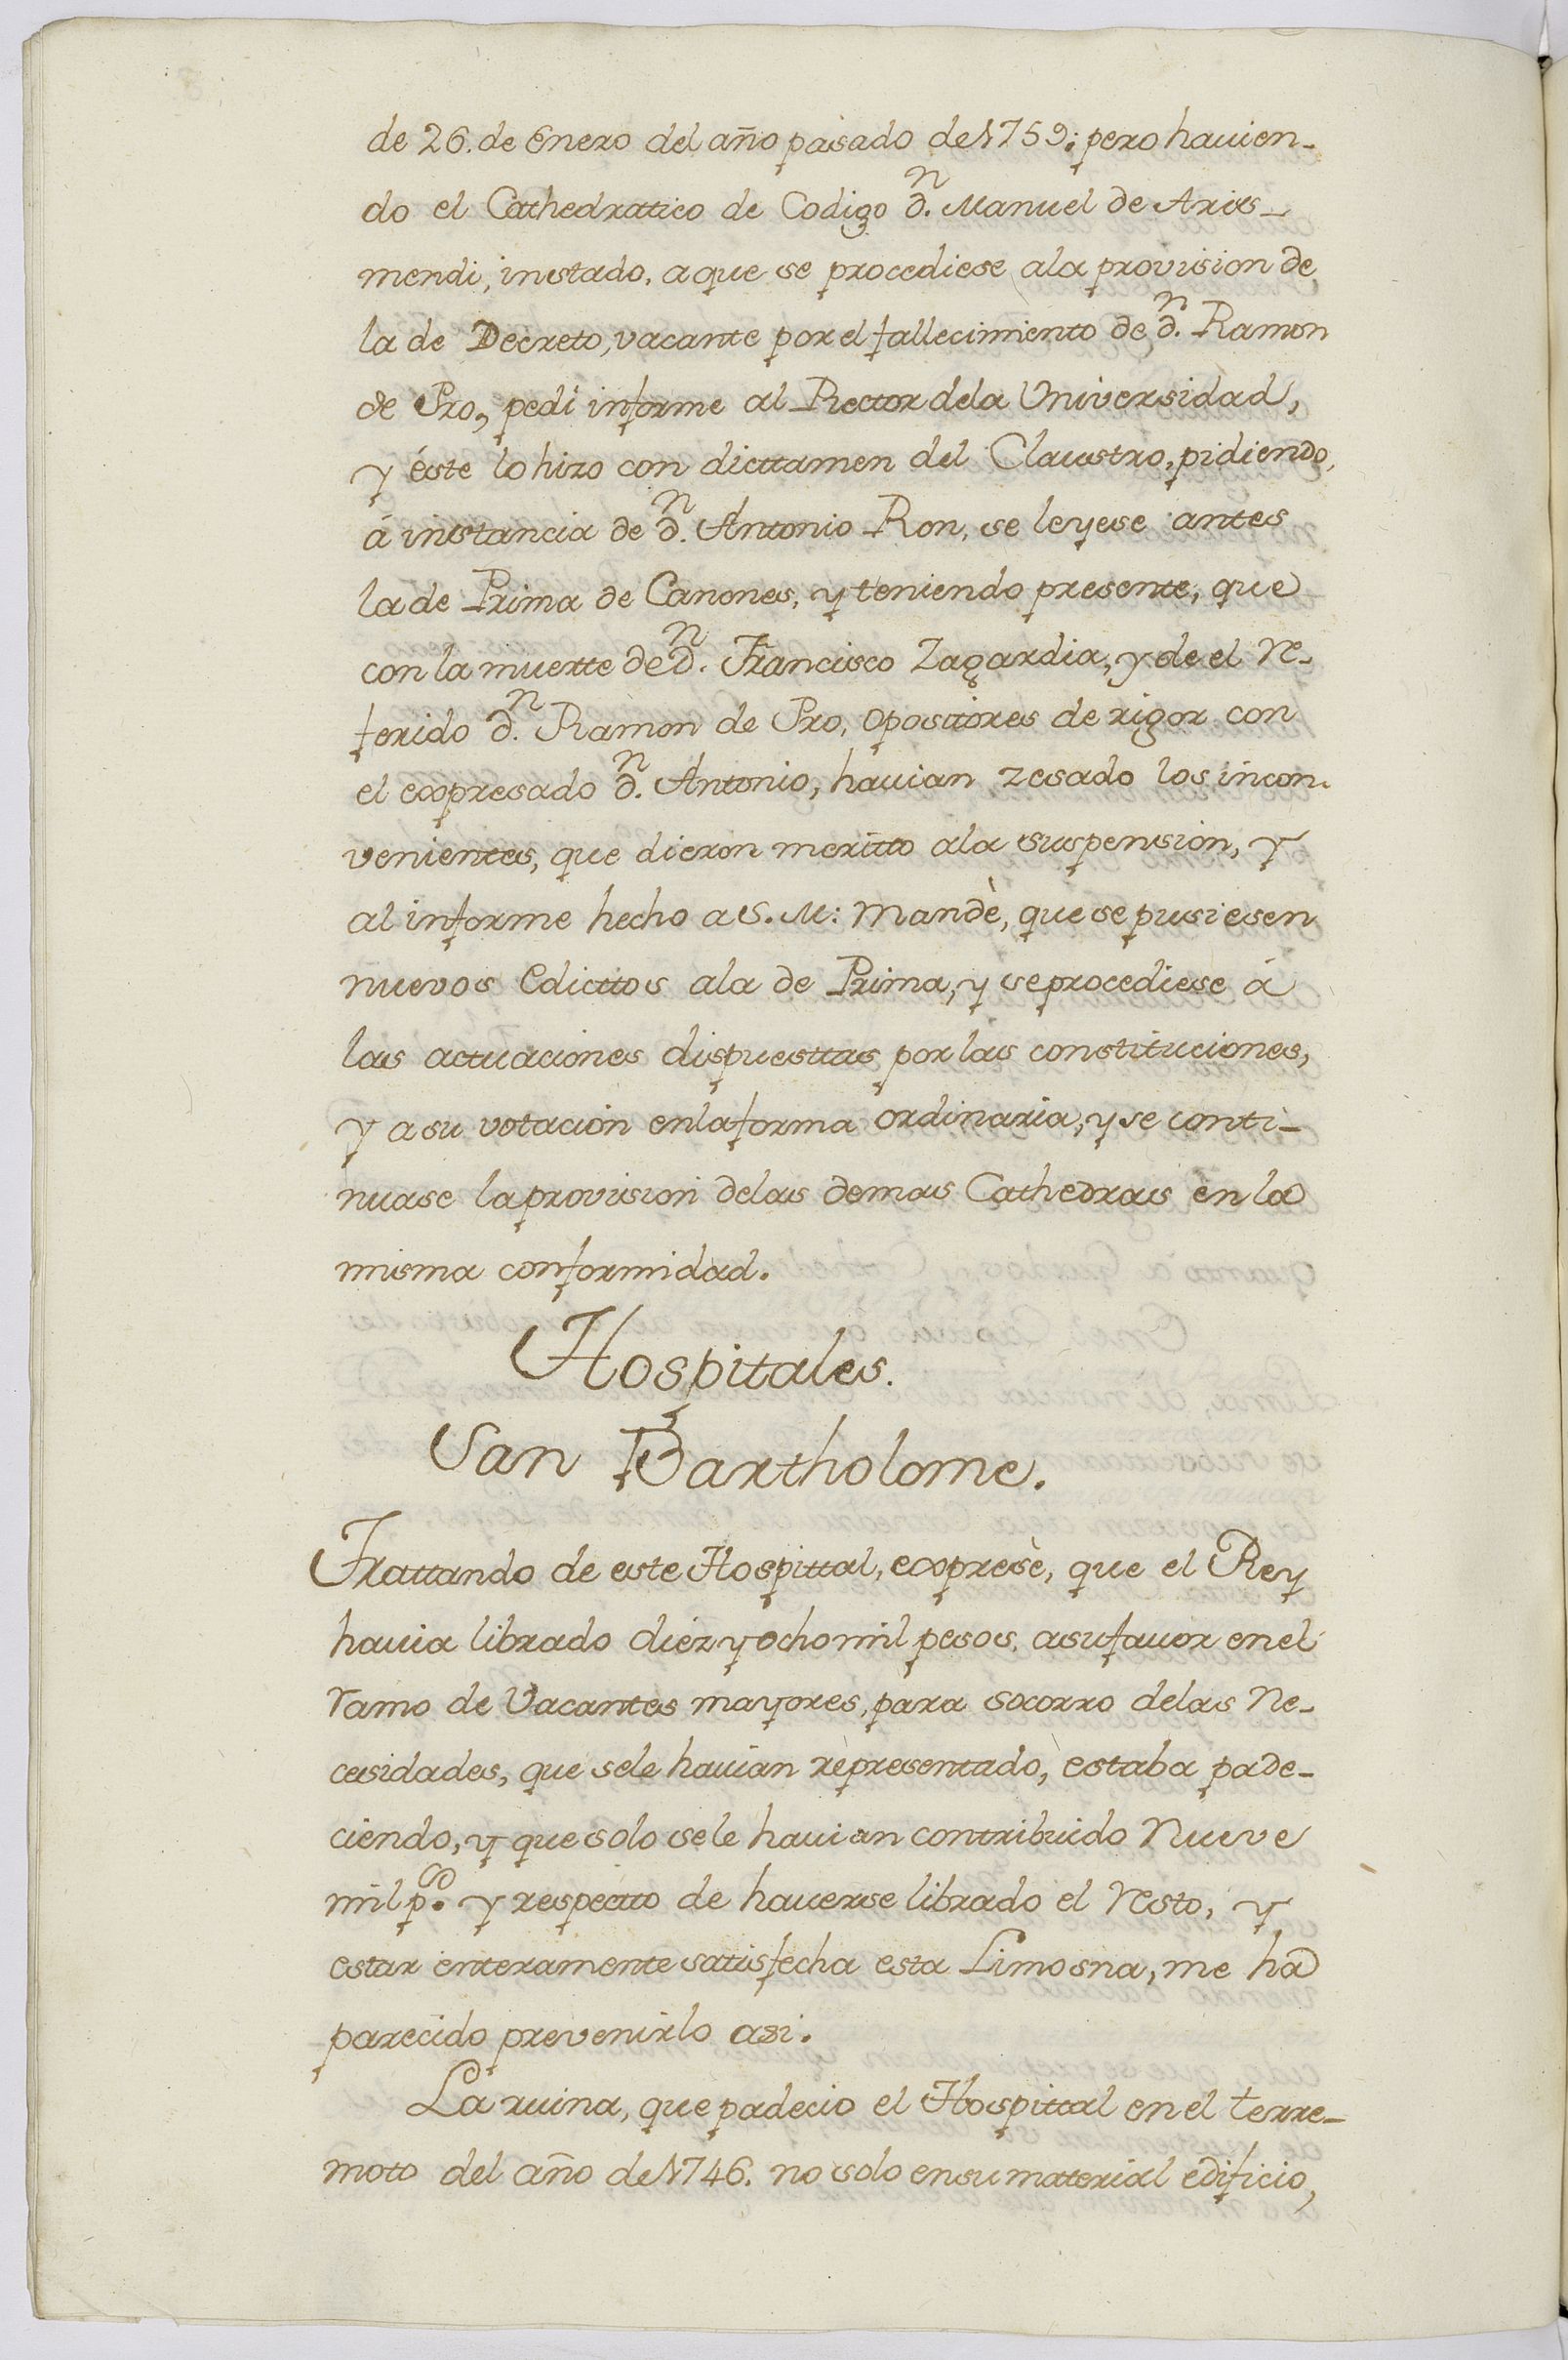 de 26. de Enero del año pasado de 1759: pero havien-
do el Cathedratico de Codigo d.ⁿ Manuel de Aris-
mendi, instado, a que se procediese ala provision de
la de Decreto, vacante por el fallecimiento de d.ⁿ Ramon
de Pro, pedi informe al Rector dela Universidad,
y éste lo hizo con dicttamen del Claustro, pidiendo,
á instancia de d.ⁿ Antonio Ron, se leyese antes
la de Prima de Canones, y teniendo presente, que
con la muertte de d.ⁿ Francisco Zagardia, y de el re-
ferido d.ⁿ Ramon de Pro, opositores de rigor con
el expresado d.ⁿ Antonio, havian zesado los incon-
venientes, que dieron meritto ala suspension, y
al informe hecho a S. M: Mandè, que se pusiesen
nuevos Edicttos ala de Prima, y se procediese á
las actuaciones dispuesttas por las constituciones,
y a su votacion en la forma ordinaria, y se conti-
nuase la provision delas demas Cathedras en la
misma conformidad.
Hospitales.
San Bartholome.
Trattando de este Hospittal, expresè, que el Rey
havia librado diez y ocho mil pesos, a su favor en el
ramo de Vacantes mayores, para socorro delas ne-
cesidades, que sele havian representado, estaba pade-
ciendo, y que solo se le havian contribuido nueve
mil p.ˢ y respectto de haverse librado el resto, y
estar enteramente satisfecha esta Limosna, me ha
parecido prevenirlo asi.
La ruina, que padecio el Hospittal en el terre-
moto del año de 1746. no solo en su material edificio,